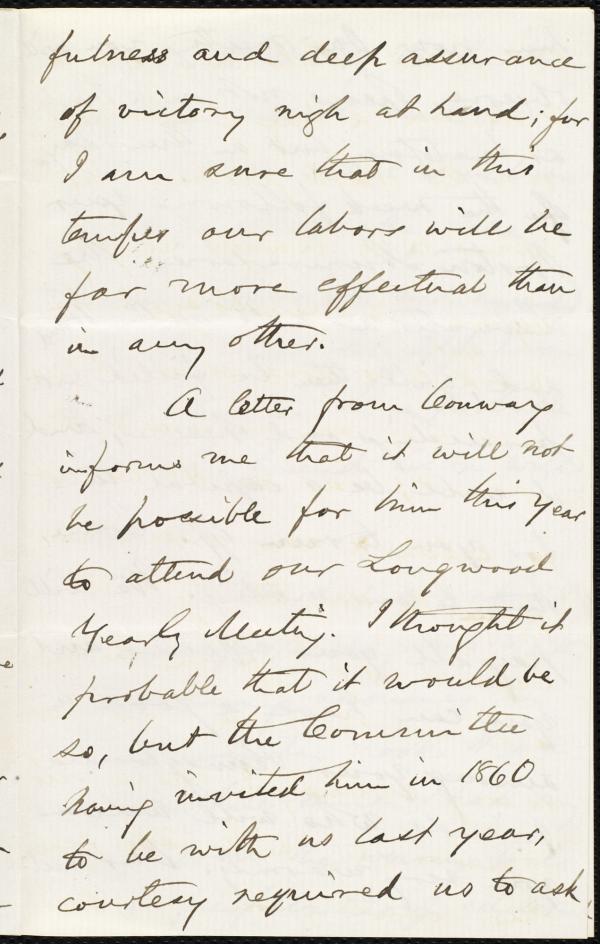 fulness and deep assurance
of victory nigh at hand; for
I am sure that in this
temper our labors will be
far more effectual than
in any other.
A letter from Conway
informs me that it will not
be possible for him this year
to attend our Longwood
Yearly Meeting. I thought it
probable that it would be
so, but the Committee
having invited him in 1860
to be with us last year,
courtesy required us to ask